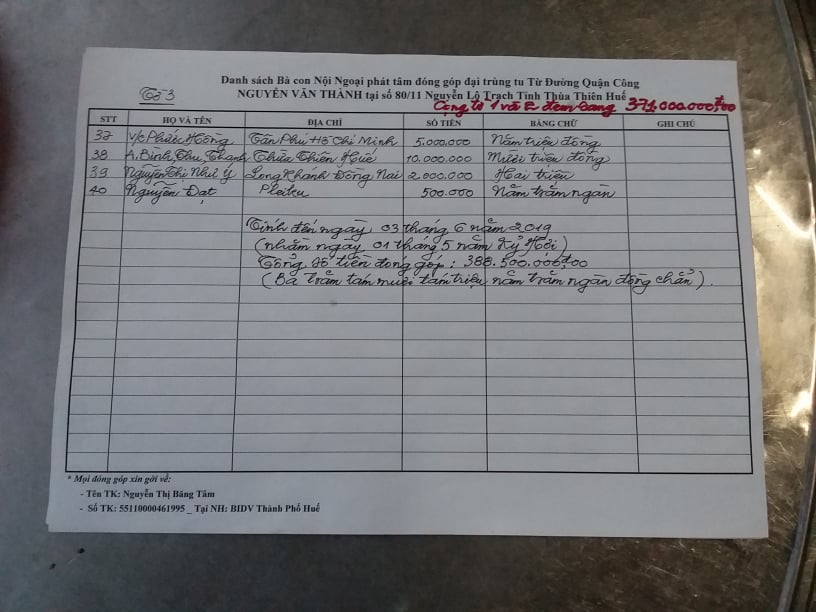 Danh sách Bà con Nội Ngoại phát tâm đóng góp đại trùng tu Từ Đường Quận Công
Tờ 3
NGUYỄN VĂN THÀNH tại số 80/11 Nguyễn Lộ Trạch Tỉnh Thừa Thiên Huế
Cọng tờ 1 và 2 đem sang 371.000.000đ00
STT HỌ VÀ TÊN ĐỊA CHỈ SỐ TIỀN BẰNG CHỮ GHI CHÚ
37 V/c Phước Hồng Tân Phú Hồ Chí Minh 5.000.000 Năm triệu đồng
38 A. Bình, Thu, Thanh Thừa Thiên Huế 10.000.000 Mười triệu đồng
39 Nguyễn Thị Như Ý Long Khánh Đồng Nai 2.000.000 Hai triệu
40 Nguyễn Đạt Pleiku 500.000 Năm trăm ngàn
Tính đến ngày 03 tháng 6 năm 2019
(nhằm ngày 01 tháng 5 năm Kỷ Hợi)
Tổng số tiền đóng góp: 388.500.000đ00
(Ba trăm tám mươi tám triệu năm trăm ngàn đồng chẵn).
* Mọi đóng góp xin gởi về:
- Tên TK: Nguyễn Thị Băng Tâm
- Số TK: 55110000461995 _ Tại NH: BIDV Thành Phố Huế